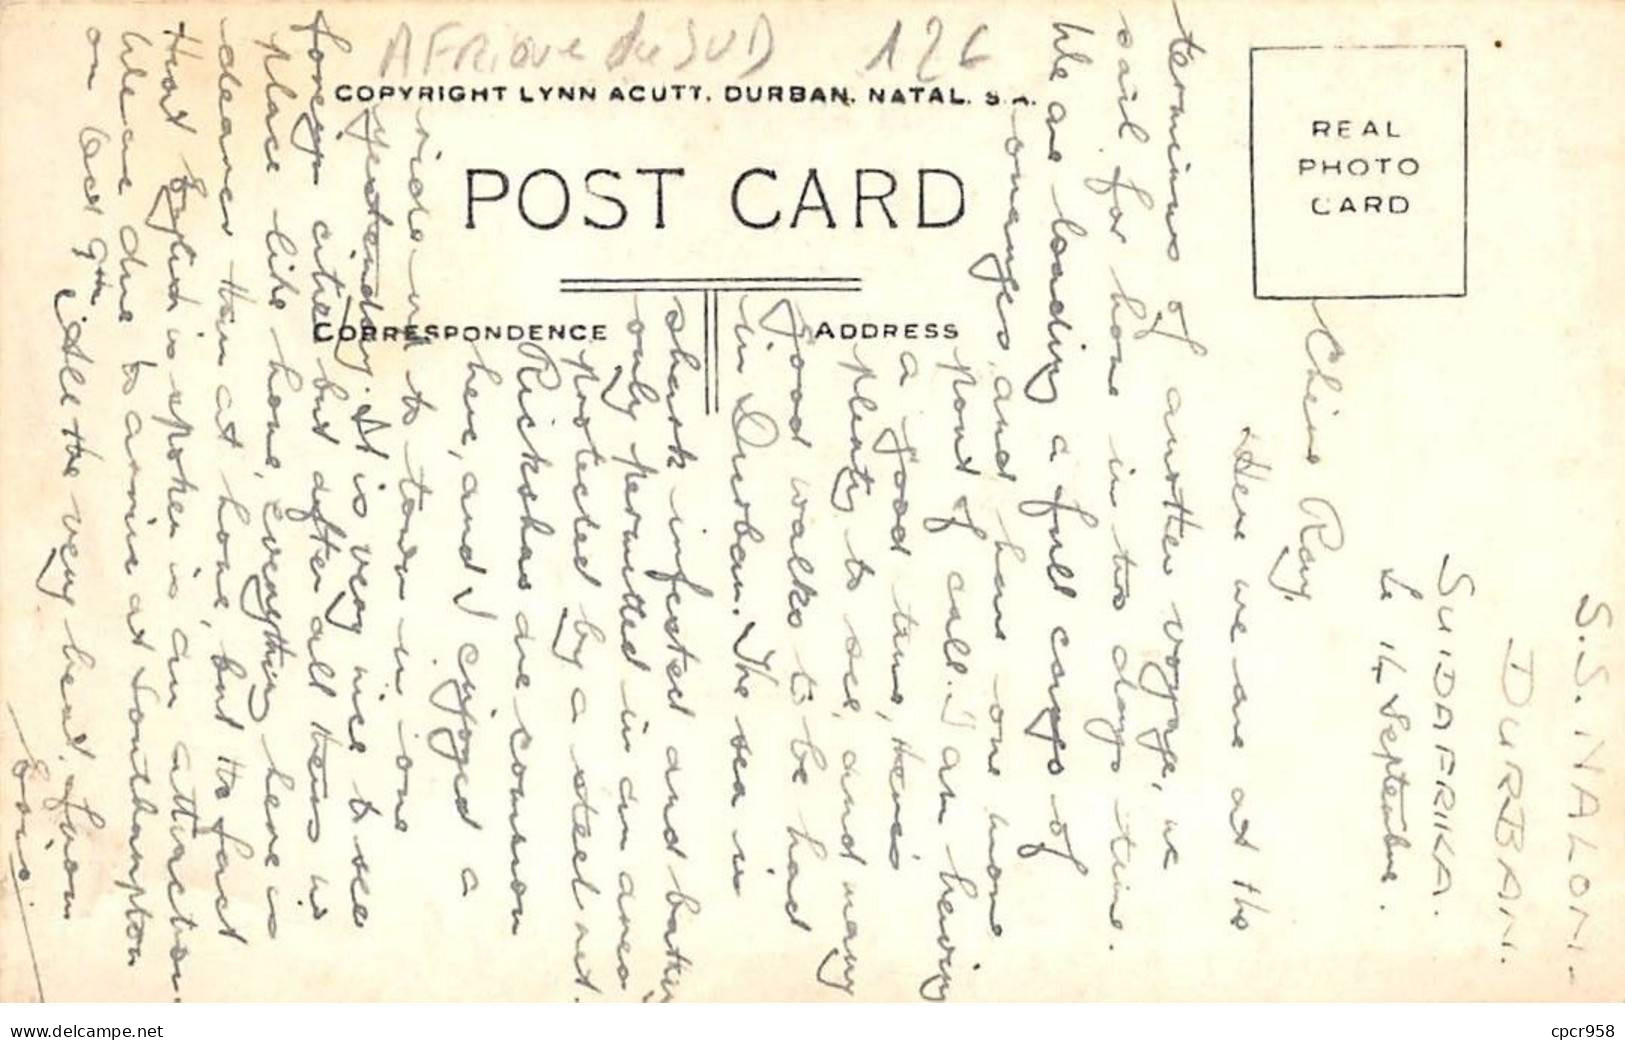 AFRIQUE du SUD 126
COPYRIGHT LYNN ACUTT. DURBAN. NATAL. S.A.
POST CARD
REAL
PHOTO
CARD
CORRESPONDENCE
ADDRESS
S.S. NALON.
DURBAN.
SUIDAFRIKA.
Le 14 Septembre.
Chins Ray,
Here we are at the
terminus of another voyage, we
sail for home in two days time.
We are loading a full cargo of
oranges, and have one more
port of call. I am having
a good time, there's
plenty to see, and many
good walks to be had
in Durban. The sea is
shark infested and bathing
only permitted in an area
protected by a steel net.
Rickshas are common
here, and I enjoyed a
ride in to town in one
yesterday. It is very nice to see
foreign cities but after all there is no
place like home, everything here is
dearer than at home, but the fact
that English is spoken is an attraction.
We are due to arrive at Southampton
on Oct 9th. All the very best, from
Eric.
www.delcampe.net
cpcr958